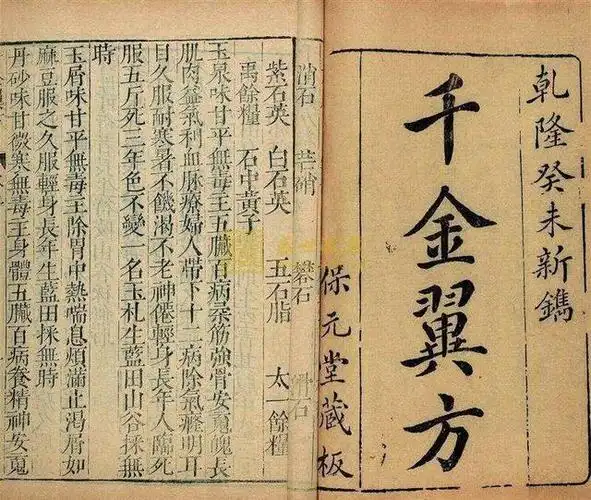 乾隆癸未新鐫
千金翼方
保元堂藏板
消石 芒硝 礬石 滑石
紫石英 白石英 五石脂 太一餘糧
禹餘糧 石中黃子
玉泉味甘平無毒主五臟百病柔筋強骨安魂魄長
肌肉益氣利血脉療婦人帶下十二病除氣癃明耳
目久服耐寒暑不饑渴不老神僊輕身長年人臨死
服五斤死三年色不變一名玉札生藍田山谷採無
時
玉屑味甘平無毒主除胃中熱喘息煩滿止渴屑如
麻豆服之久服輕身長年生藍田採無時
丹砂味甘微寒無毒主身體五臟百病養精神安魂